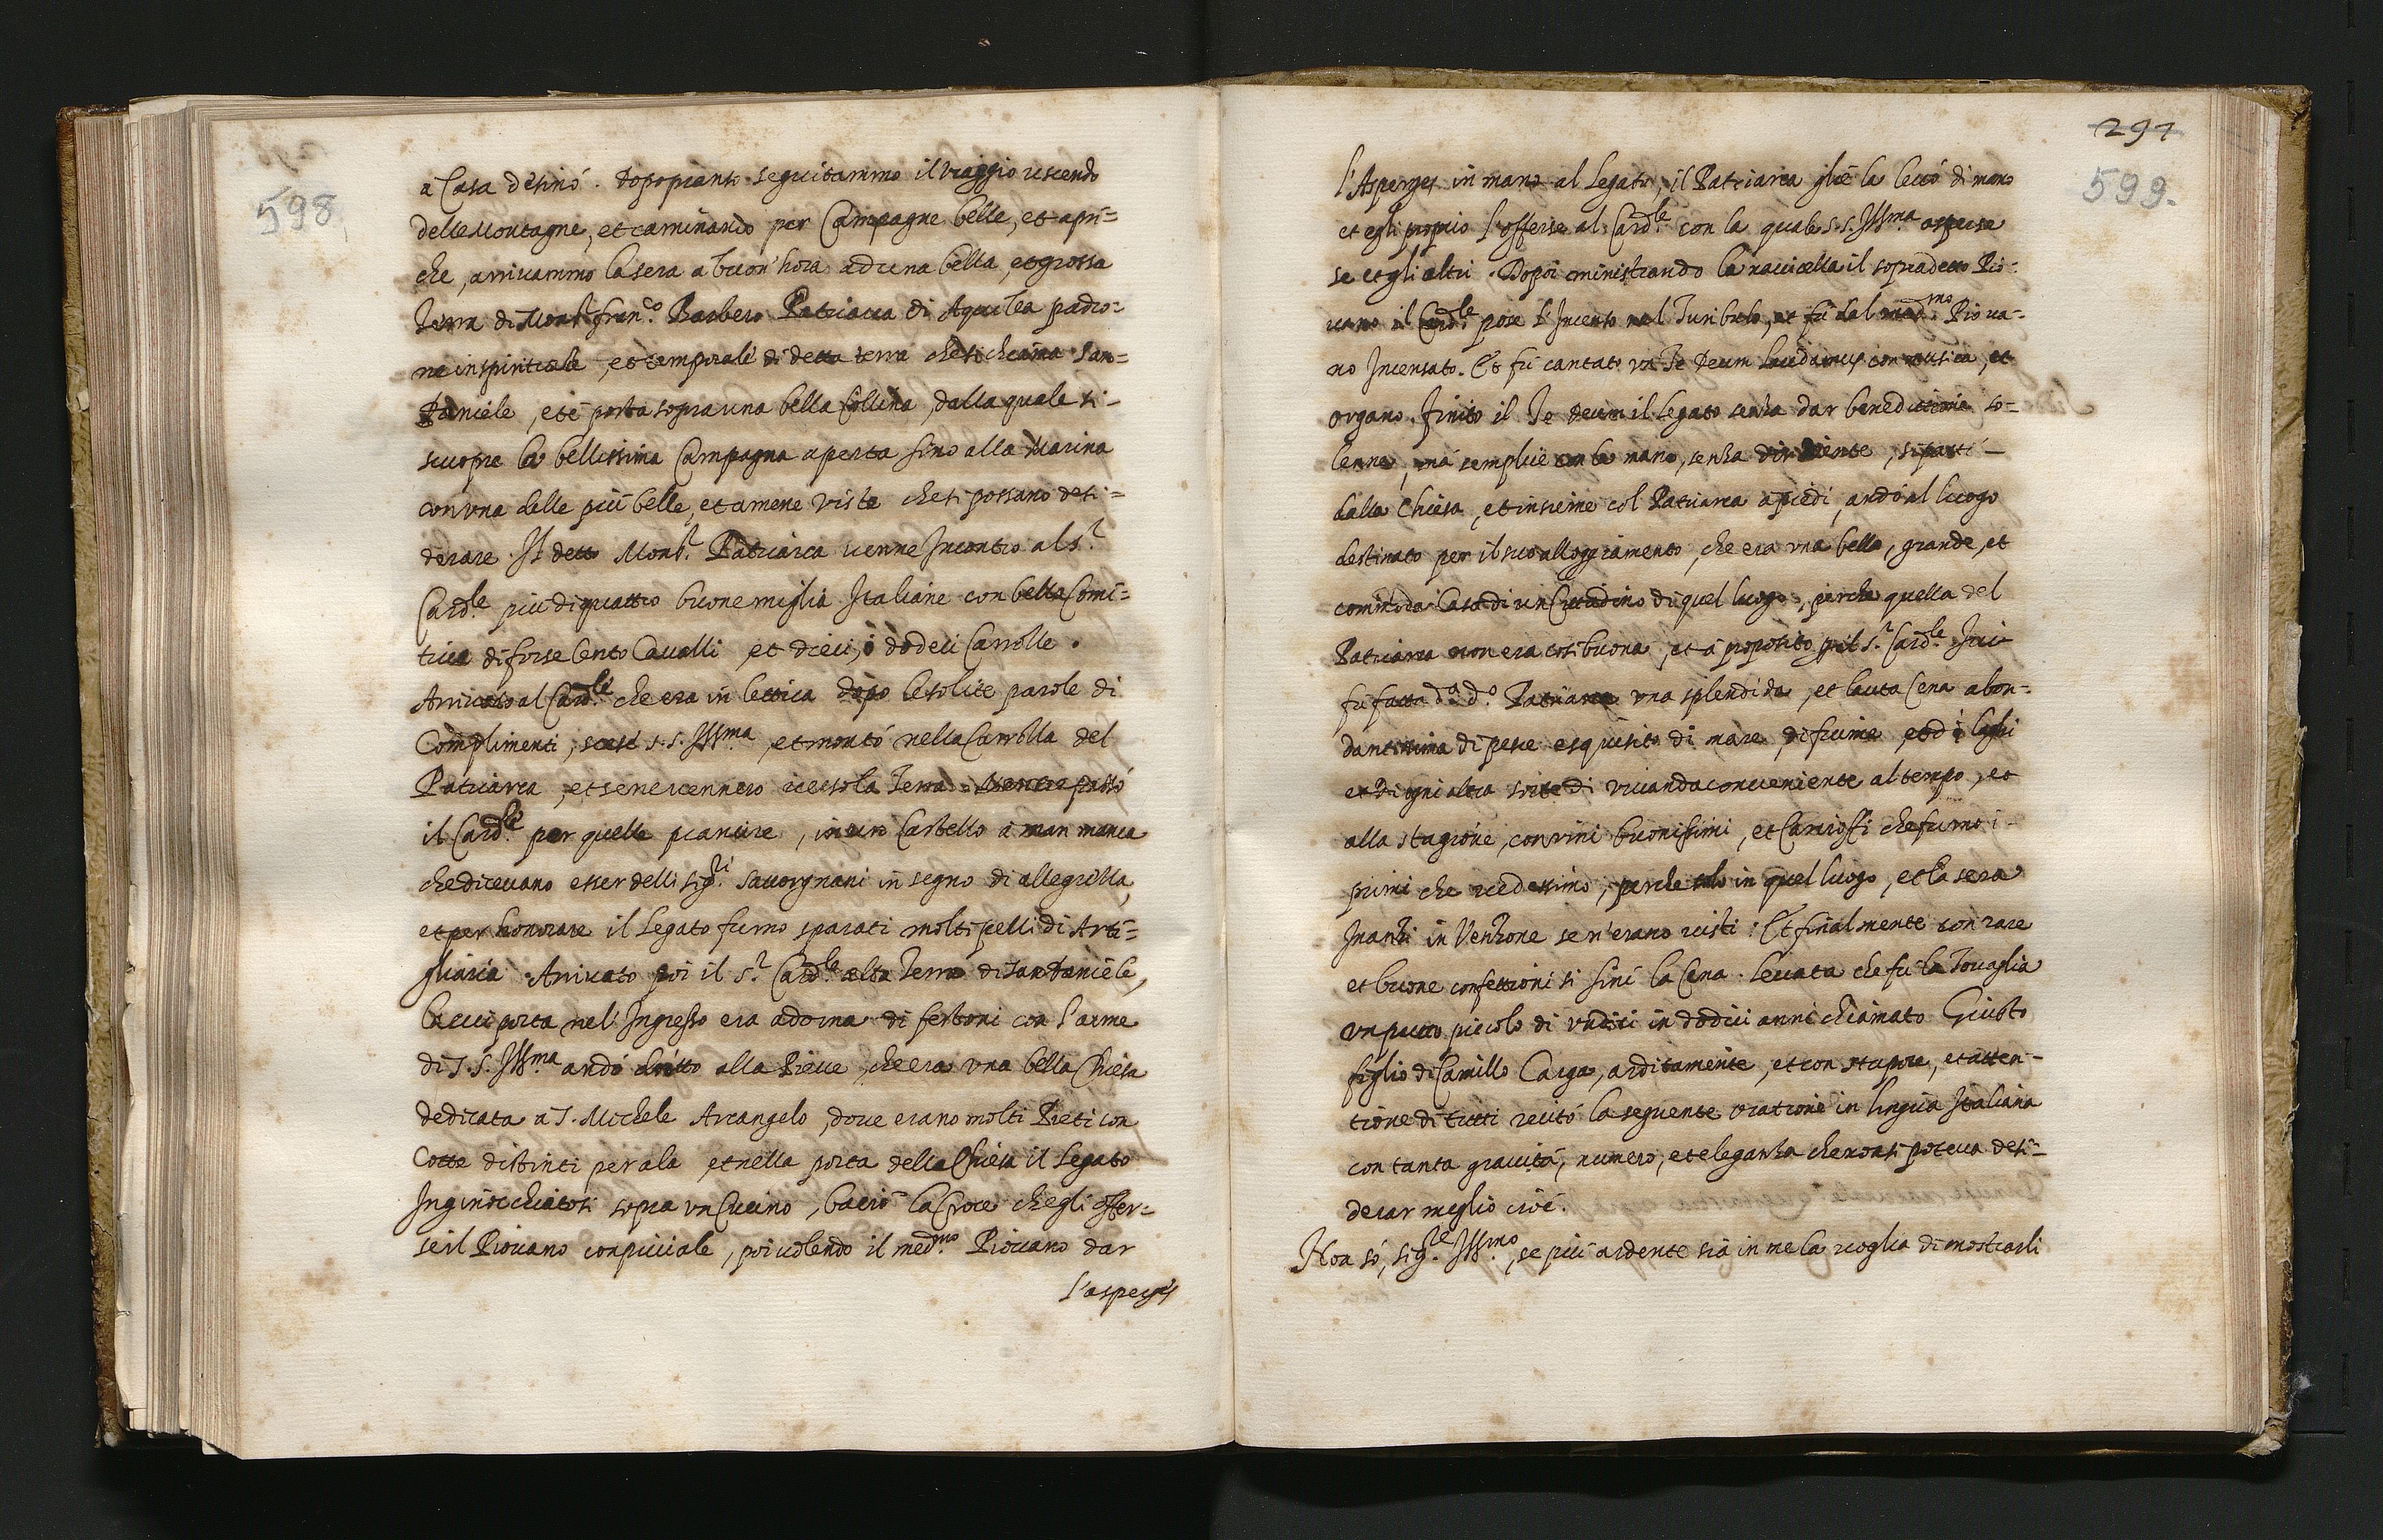 598
a Casa destinò. Dopopranso seguitammo il viaggio uscendo
delle Montagne, et caminando per Campagne belle, et apri=
che, arrivammo la sera a buon'hora ad una bella, et grossa
Terra di Mons.r Fran.co Barbero Patriarca di Aquilea padro=
ne in spirituale, et temporale di detta terra che si chiama San=
Daniele, et è posta sopra una bella Collina, dalla quale si=
scuopre la bellissima Campagna aperta sino alla Marina
con una delle più belle, et amene viste che si possano desi=
derare. Il detto Mons.r Patriarca venne Incontro al S.r
Card.le più di quattro buone miglia Italiane con bella Comi=
tiva di forse Cento Cavalli et dieci, ò dodeci Carrozze.
Arrivato al Card.le che era in lettica dopo le solite parole di
Complimenti, scese S.S. Ill.ma, et montò nella Carrozza del
Patriarca, et se ne vennero verso la Terra. Mentre passò
il Card.le per quelle pianure, in un Castello a man manca
che dicevano esser delli Sig.ri Savorgnani in segno di allegrezza,
et per honorare il Legato furno sparati molti pezzi di Arti=
gliaria. Arrivato poi il S.r Card.le alla Terra di San Daniele,
la cui porta nel'Ingresso era adorna di festoni con l'arme
di S.S. Ill.ma andò dritto alla Pieve, che era una bella Chiesa
dedicata a S. Michele Arcangelo, dove erano molti Preti con
Cotte distinti per ala et nella porta della Chiesa il Legato
Inginocchiatosi sopra un Cuscino, baciò la Croce che gli offer=
se il Piovano con piviale, poi volendo il med.mo Piovano dar
l'asperges
291
599.
l'Asperges in mano al Legato, il Patriarca gliè la levò di mano
et egli proprio l'offerse al Card.le con la quale S.S. Ill.ma asperse
se et gli altri. Dopoi ministrando la navicella il sopradetto Pio=
vano il Card.le pose l'Incenso nel Turibulo, et fù dal med.mo Piova=
no Incensato. Et fù cantato un Te Deum laudamus con musica, et
organo. Finito il Te Deum il Legato senza dar benedittione so=
lenne, mà semplice con la mano, senza dir niente, si partì
dalla Chiesa, et insieme col Patriarca a piedi, andò al luogo
destinato per il suo alloggiamento, che era una bella, grande, et
commoda Casa di un Cittadino di quel luogo, perche quella del
Patriarca non era così buona, et a proposito p. il S.r Card.le Ivi
fù fatta da d.o Patriarca una splendida, et lauta Cena abon=
dantissima di pesce esquisito di mare, di fiume, et di laghi
et di ogni altra sorte di vivanda conveniente al tempo, et
alla stagione, con vini buonissimi, et Carcioffi che furno i
primi che vedessimo, perche solo in quel luogo, et la sera
Inanzi in Venzone se n'erano visti. Et finalmente con rare
et buone confettioni si finì la Cena. Levata che fù la Tovaglia
un putto piccolo di undici in dodici anni chiamato Giusto
figlio di Camillo Carga, arditamente, et con stupore, et atten=
tione di tutti recitò la seguente oratione in lingua Italiana
con tanta gravità, numero, et eleganza che non si poteva desi=
derar meglio cioè.
Non sò, Sig.re Ill.mo, se più ardente sia in me la voglia di mostrarli